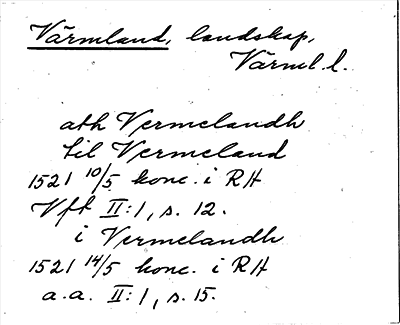 Värmland, landskap,
Värml. l.
ath Vermelandh
til Vermeland
1521 10/5 konc. i RA
Vfh II:1, s. 12.
i Vermelandh
1521 14/5 konc. i RA
a.a. II:1, s. 15.